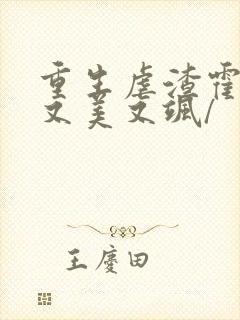 重生虐渣霍
又美又飒/
王慶田